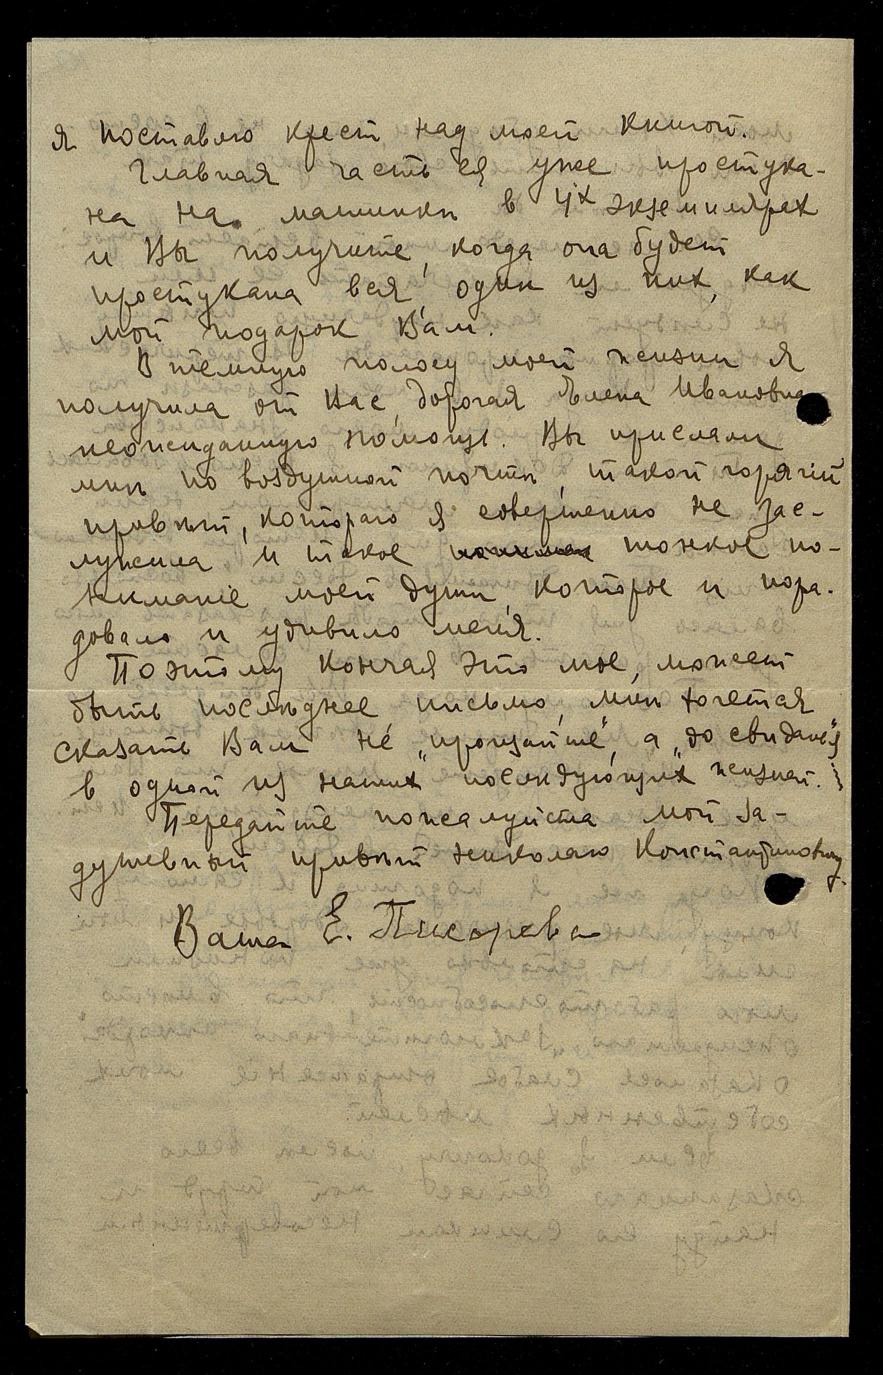 я поставлю крест над моей книгой.
Главная часть ея уже простука-
на на машинкѣ в 4х экземплярах
и Вы получите, когда она будет
простукана вся, один из них, как
мой подарок Вам.
В темную полосу моей жизни я
получила от Вас, дорогая Елена Ивановна
неожиданную помощь. Вы прислали
мнѣ по воздушной почтѣ, такой горячій
привѣт, котораго я совершенно не зас-
лужила и такое тонкое по-
ниманіе моей души, которое и пора-
довало и удивило меня.
Поэтому кончая это мое, может
быть послѣднее, письмо, мнѣ хочется
сказать Вам не „прощайте", а „до свиданія
в одной из наших послѣдующих жизней."
Передайте пожалуйста мой за-
душевный привѣт Николаю Константиновичу.
Ваша Е. Писарева